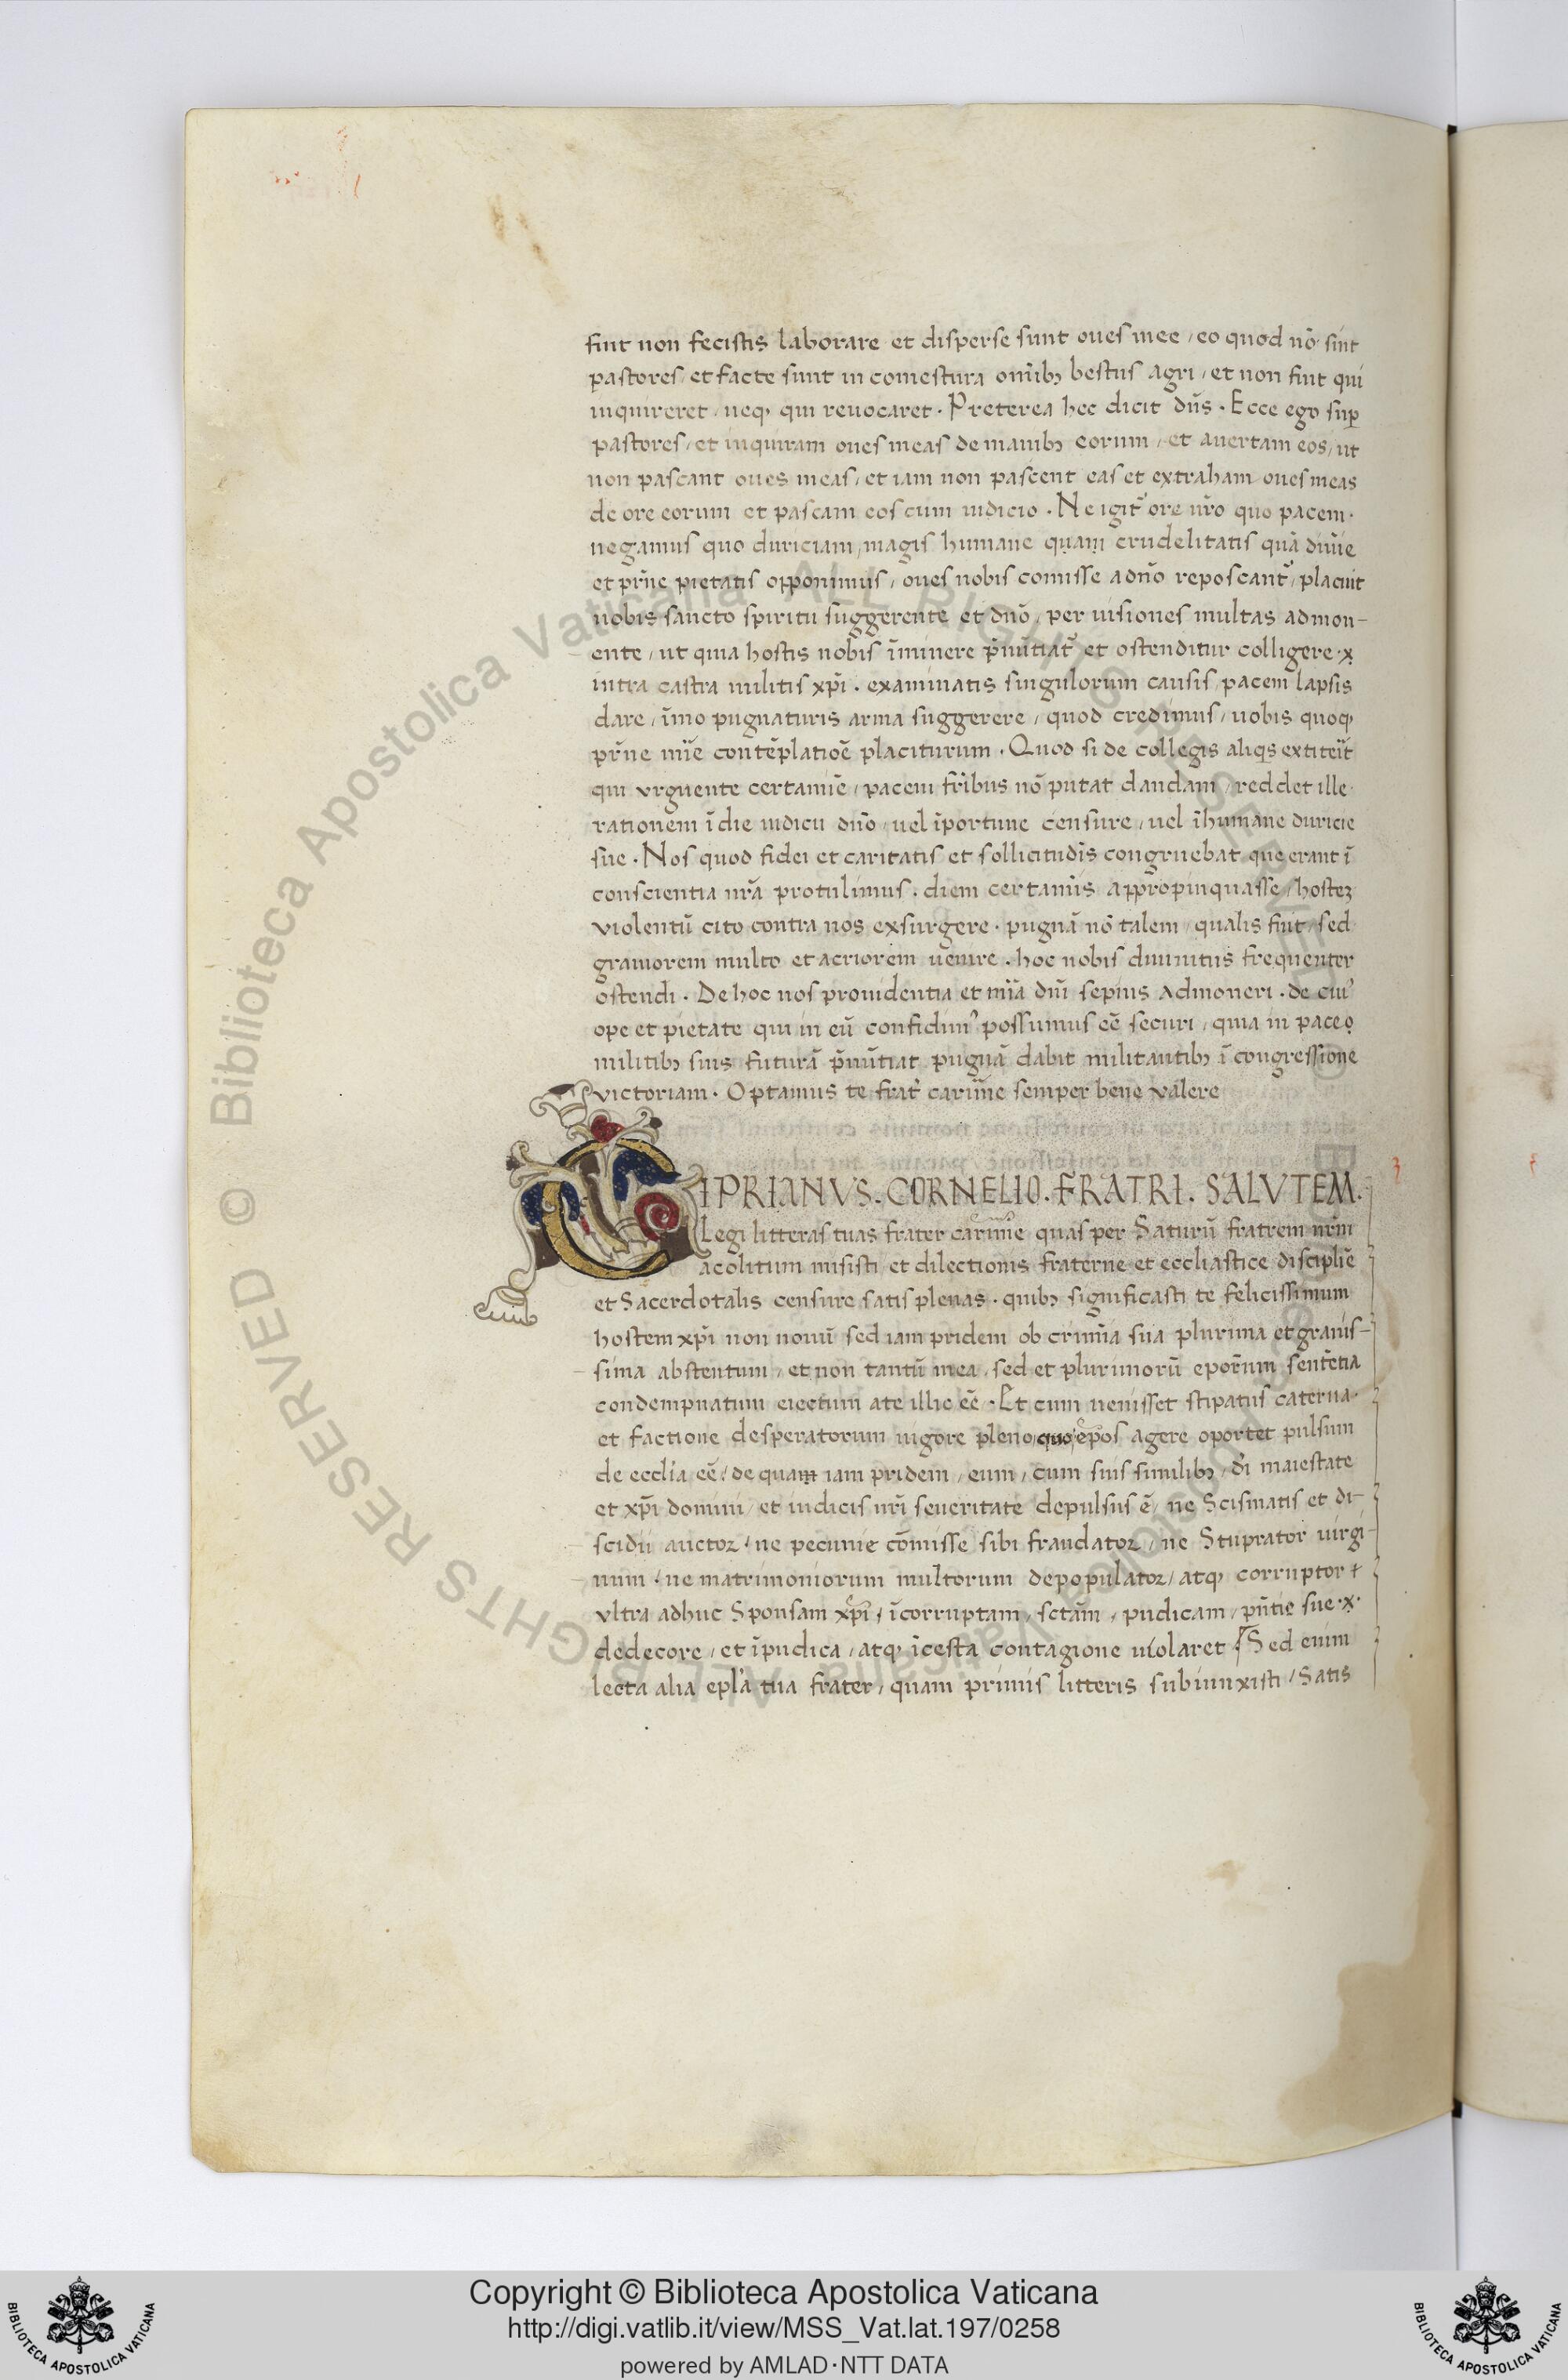 fuit non fecistis laborare et disperse sunt oues mee / eo quod nō sint
pastores / et facte sunt in comestura om̄ibꝫ bestiis agri / et non fuit qui
inquireret / neqꝫ qui reuocaret . Preterea hec dicit dn̄s . Ecce ego suꝑ
pastores / et inquiram oues meas de manibꝫ eorum / et auertam eos / ut
non pascant oues meas / et iam non pascent eas et extraham oues meas
de ore eorum et pascam eos cum iudicio . Ne igit᷑ ore nr̄o quo pacem
negamus quo duriciam magis humane quam crudelitatis quā diuīe
et pr̄ne pietatis opponimus / oues nobis comisse a dn̄o reposcant᷑ / placuit
nobis sancto spiritu suggerente et dn̄o / per uisiones multas admon-
ente / ut quia hostis nobis īminere p̄nūtiat᷑ et ostenditur colligere .x
intra castra militis xp̄i . examinatis singulorum causis pacem lapsis
dare / īmo pugnaturis arma suggerere / quod credimus / uobis quoqꝫ
pr̄ne mīe contēplatiōe placiturum . Quod si de collegis aliqs extiteīt
qui vrguente certamīe / pacem fr̄ibus nō putat dandam / reddet ille
rationem ī die iudicii dn̄o / uel īportune censure / uel īhumane duricie
sue . Nos quod fidei et caritatis et sollicitudīs congruebat que erant ī
conscientia nr̄a protulimus . diem certamīs appropinquasse / hosteꝫ
violentū cito contra nos exsurgere . pugnā nō talem / qualis fuit / sed
grauiorem multo et acriorem uenire . hoc nobis diuinitus frequenter
ostendi . De hoc nos prouidentia et mīa dnī sepius admoneri . de cui᷒
ope et pietate qui in eū confidim᷒ possumus eē securi / quia in pace
militibꝫ suis futurā p̄nūtiat pugnā dabit militantibꝫ ī congressione
victoriam . Optamus te frat᷑ carīme semper bene valere
CIPRIANVS . CORNELIO . FRATRI . SALVTEM .
Legi litteras tuas frater carīme quas per Saturū fratrem nr̄m
acolitum misisti et dilectionis fraterne et eccliastice disciplīe
et Sacerdotalis censure satis plenas . quibꝫ significasti te felicissimum
hostem xp̄i non nouū sed iam pridem ob crimīa sua plurima et grauis-
sima abstentum / et non tantū mea / sed et plurimorū eporum sentētia
condempnatum eiectum a te illic eē . Et cum uenisset stipatus caterua
et factione desperatorum uigore pleno quo ep̄os agere oportet pulsum
de eccl̄ia eē / de quam iam pridem / eum / cum suis similibꝫ / dī maiestate
et xp̄i domini / et iudicis nr̄i seueritate depulsus ē / ne Scismatis et di-
scidii auctoꝛ / ne pecunie cōmisse sibi fraudatoꝛ / ne Stuprator uirgi-
num / ne matrimoniorum multorum depopulatoꝛ / atqꝫ corruptor
vltra adhuc Sponsam xp̄i / īcorruptam / sctām / pudicam / pn̄tie sue .x.
dedecore / et īpudica / atqꝫ īcesta contagione uiolaret . Sed enim
lecta alia epl̄a tua frater / quam primis litteris subiunxisti / Satis
© Biblioteca Apostolica Vaticana ALL RIGHTS RESERVED
Copyright © Biblioteca Apostolica Vaticana
http://digi.vatlib.it/view/MSS_Vat.lat.197/0258
powered by AMLAD·NTT DATA
BIBLIOTECA APOSTOLICA VATICANA
BIBLIOTECA APOSTOLICA VATICANA